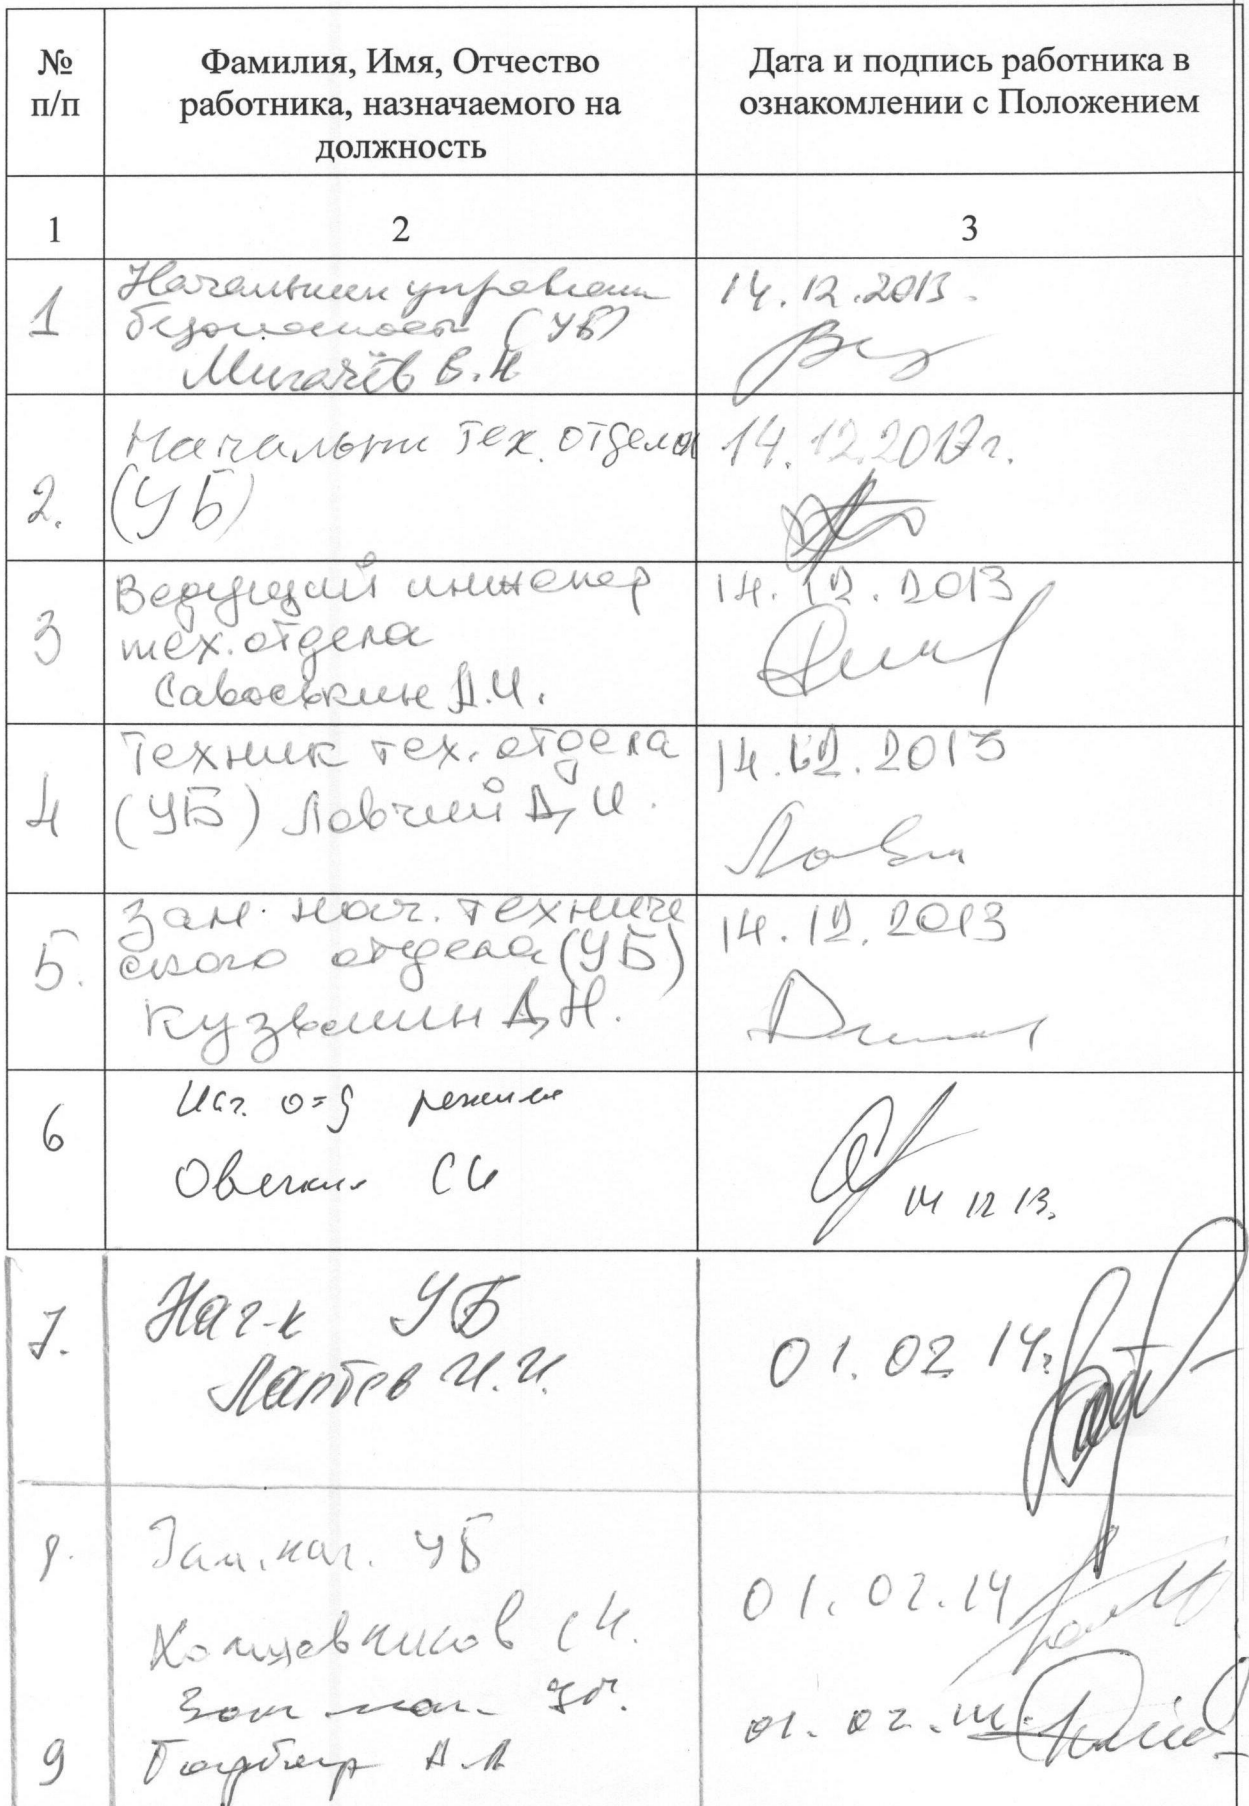 №
п/п
Фамилия, Имя, Отчество
работника, назначаемого на
должность
Дата и подпись работника в
ознакомлении с Положением
1
2
3
1
Начальник управлени
безопасности (УБ)
Мигачёв В.Н
14.12.2013.
2.
Начальни тех. отдела
(УБ)
3
Ведущий инженер
тех. отдела
Савоськин А.И.
14.12.2013
4
Техник тех. отдела
(УБ) Ловчий Д,И.
14.12.2013
5.
Зам. нач. техниче
ского отдела (УБ)
Кузьмин Д,Н.
14.12.2013
6
Нач. о=д режима
Овечкин СИ
14 12 13.
7.
Нач-к УБ
Лаптев И.И.
01.02 14г
8.
Зам. нач. УБ
01.02.14
9
Зам нач.
01.02.14